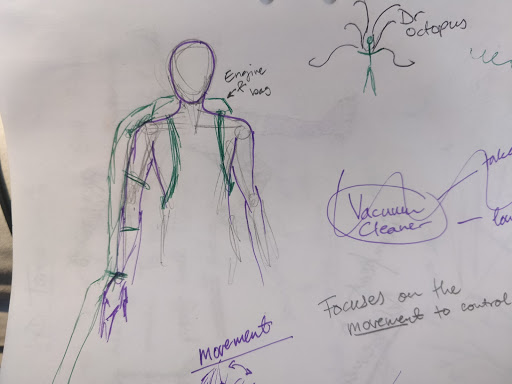 Dr
Octopus
Engine
& bag
Vacuum
Cleaner
Focuses on the
movement to control
Movement